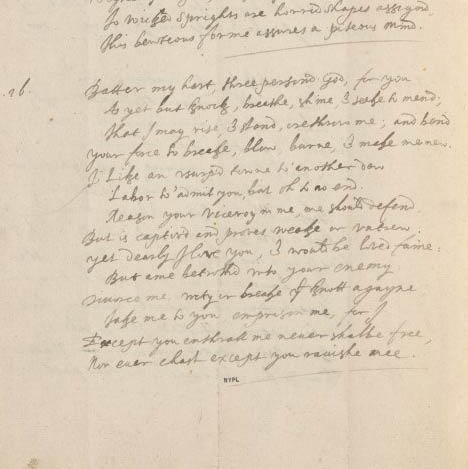 To wicked sprights are horrid shapes assign'd,
This beauteous forme assures a piteous mind.
16.
Batter my hart, three person'd God, for you
As yet but knock, breathe, shine, & seeke to mend;
That I may rise, & stand, orethrow me; and bend
your force to breake, blow, burne, & make me new.
I Like an usurp'd towne to'another dew
Labor to'admit you, but oh to no end.
Reason your viceroy in me, me should defend
But is captiv'd and proves weake or untrew;
yet dearly I love you, & would be lov'd faine:
But ame betroth'd unto your enemy
divorce me, unty or breake yt knott agayne
Take me to you emprison me, for I
Except you enthrall me never shalbe free,
Nor ever chast except you ravishe mee.
NYPL